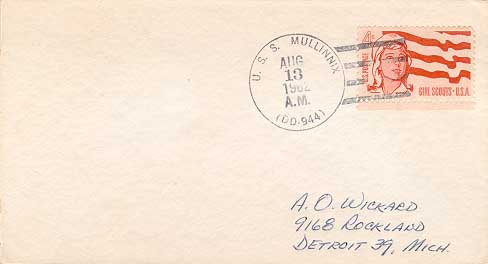 U. S. S. MULLINNIX
AUG
13
1962
A.M.
(DD-944)
4¢
GIRL SCOUTS · U.S.A.
A. O. WICKARD
9168 ROCKLAND
DETROIT 39, MICH.